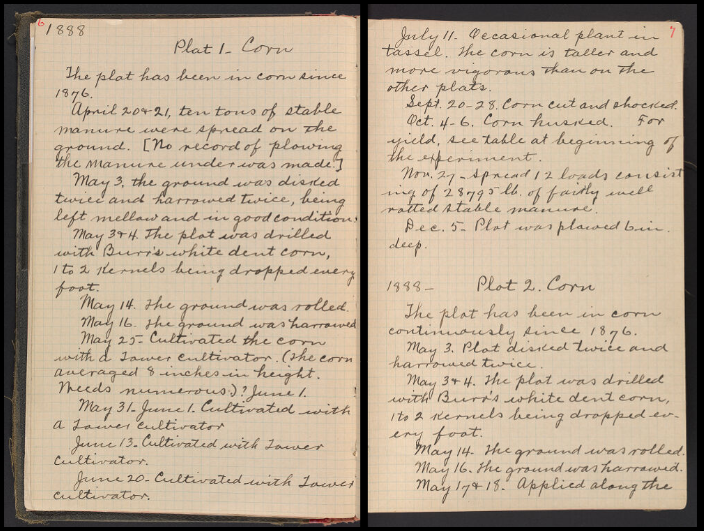 6
1888
Plat 1 - Corn
The plat has been in corn since
1876.
April 20 & 21, ten tons of stable
manure were spread on the
ground. [No record of plowing
the manure under was made.]
May 3, the ground was disked
twice and harrowed twice, being
left mellow and in good condition.
May 3 & 4. The plot was drilled
with Burr's white dent corn,
1 to 2 kernels being dropped every
foot.
May 14. The ground was rolled.
May 16. The ground was harrowed
May 25 - Cultivated the corn
with a Tower cultivator. (The corn
averaged 8 inches in height.
Weeds numerous.)? June 1.
May 31 - June 1. Cultivated with
a Tower cultivator
June 13 - Cultivated with Tower
cultivator.
June 20 - Cultivated with Tower
cultivator.
7
July 11 - Occasional plant in
tassel. The corn is taller and
more vigorous than on the
other plats.
Sept. 20-28. Corn cut and shocked.
Oct. 4-6. Corn husked. For
yield, see table at beginning of
the experiment.
Nov. 27 - Spread 12 loads consist
ing of 28795 lb. of fairly well
rotted stable manure.
Dec. 5 - Plat was plowed 6 in.
deep.
1888 - Plot 2. Corn
The plot has been in corn
continuously since 1876.
May 3. Plat disked twice and
harrowed twice.
May 3 & 4. The plot was drilled
with Burr's white dent corn,
1 to 2 kernels being dropped ev-
ery foot.
May 14 - The ground was rolled.
May 16. The ground was harrowed.
May 17 & 18. Applied along the